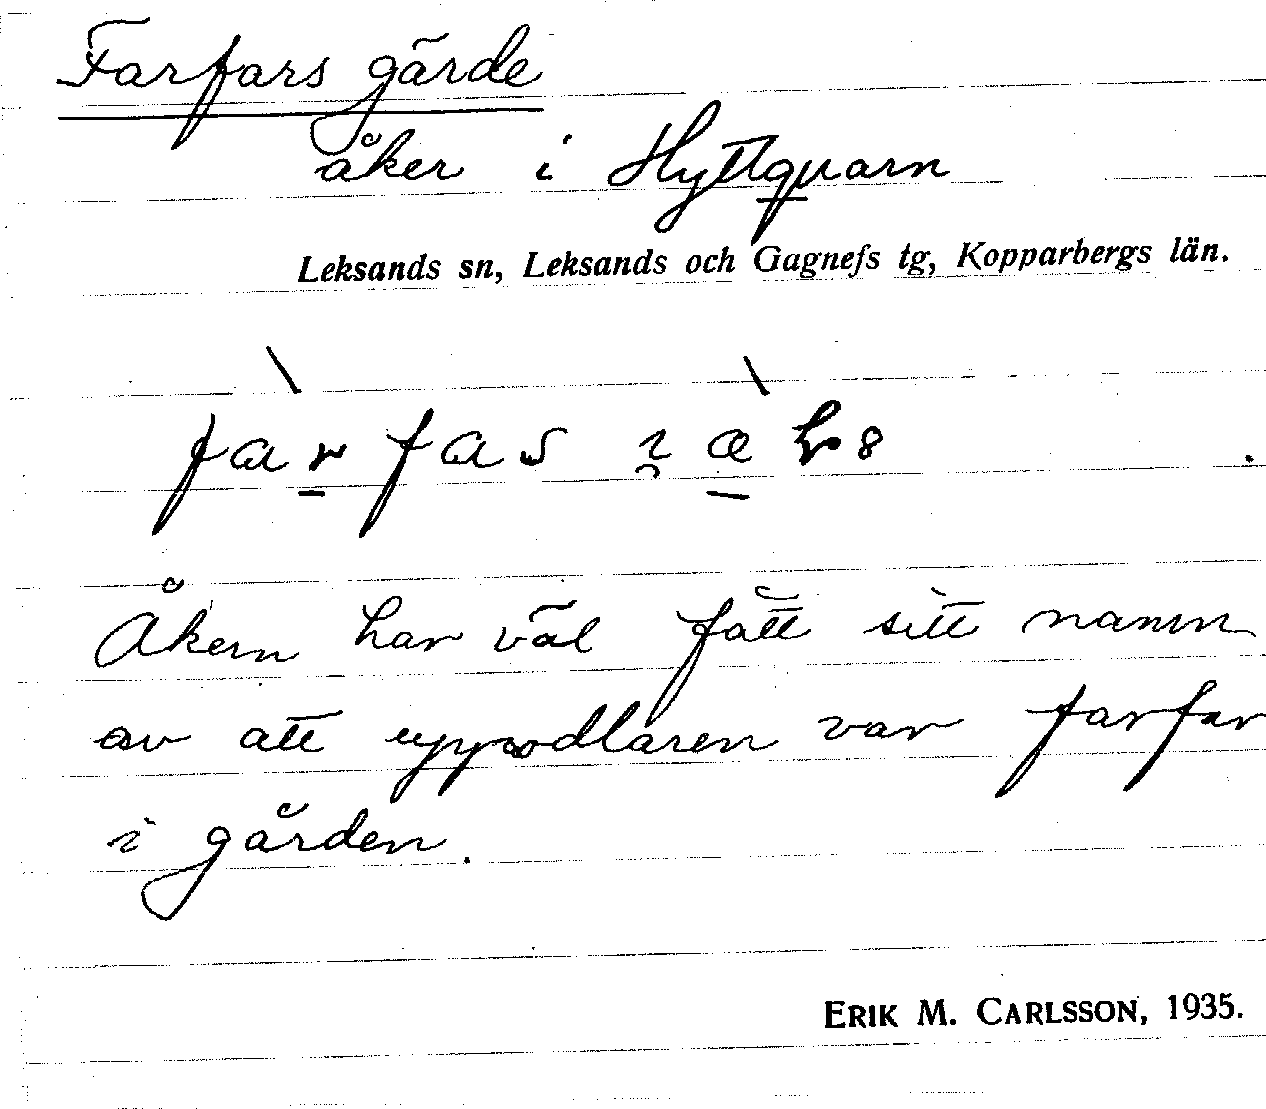 Farfars gärde
åker i Hyttquarn
Leksands sn, Leksands och Gagnefs tg, Kopparbergs län.
farfas
Åkern har väl fått sitt namn
av att uppodlaren var farfar
i gården.
ERIK M. CARLSSON, 1935.